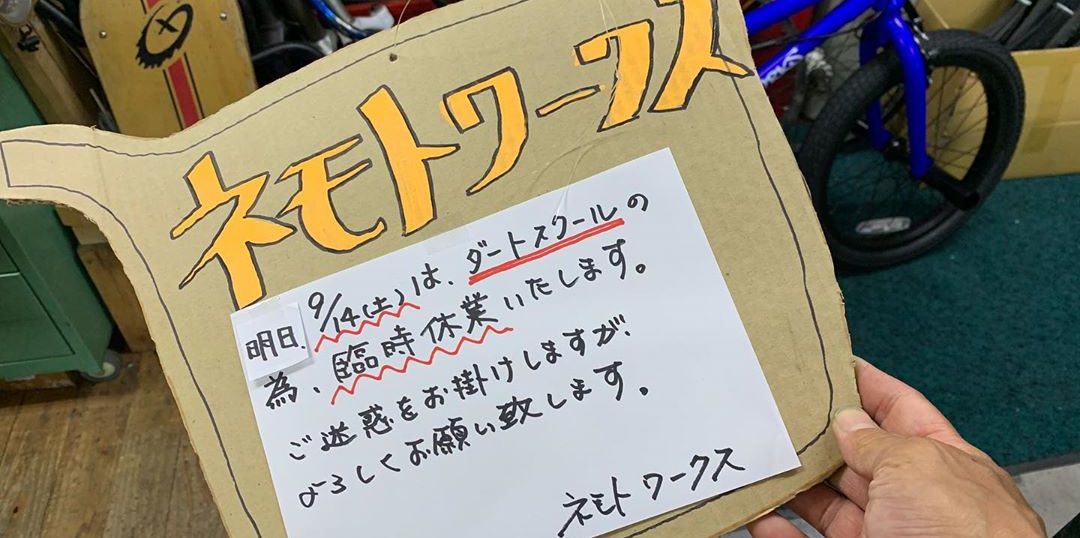 ネモトワークス
明日、9/14(土)は、ダートスクールの
為、臨時休業いたします。
ご迷惑をお掛けしますが、
よろしくお願い致します。
ネモト ワークス